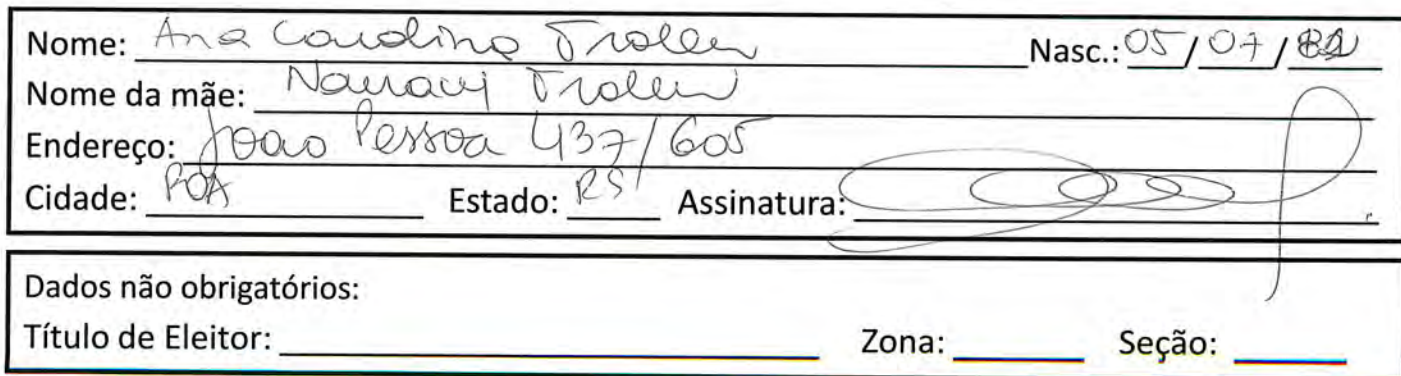 Nome: Ana Carolina Trolen Nasc.: 05/07/82
Nome da mãe: Trolen
Endereço: Joao Pessoa 437/605
Cidade: POA Estado: RS Assinatura:
Dados não obrigatórios:
Título de Eleitor: Zona: Seção: